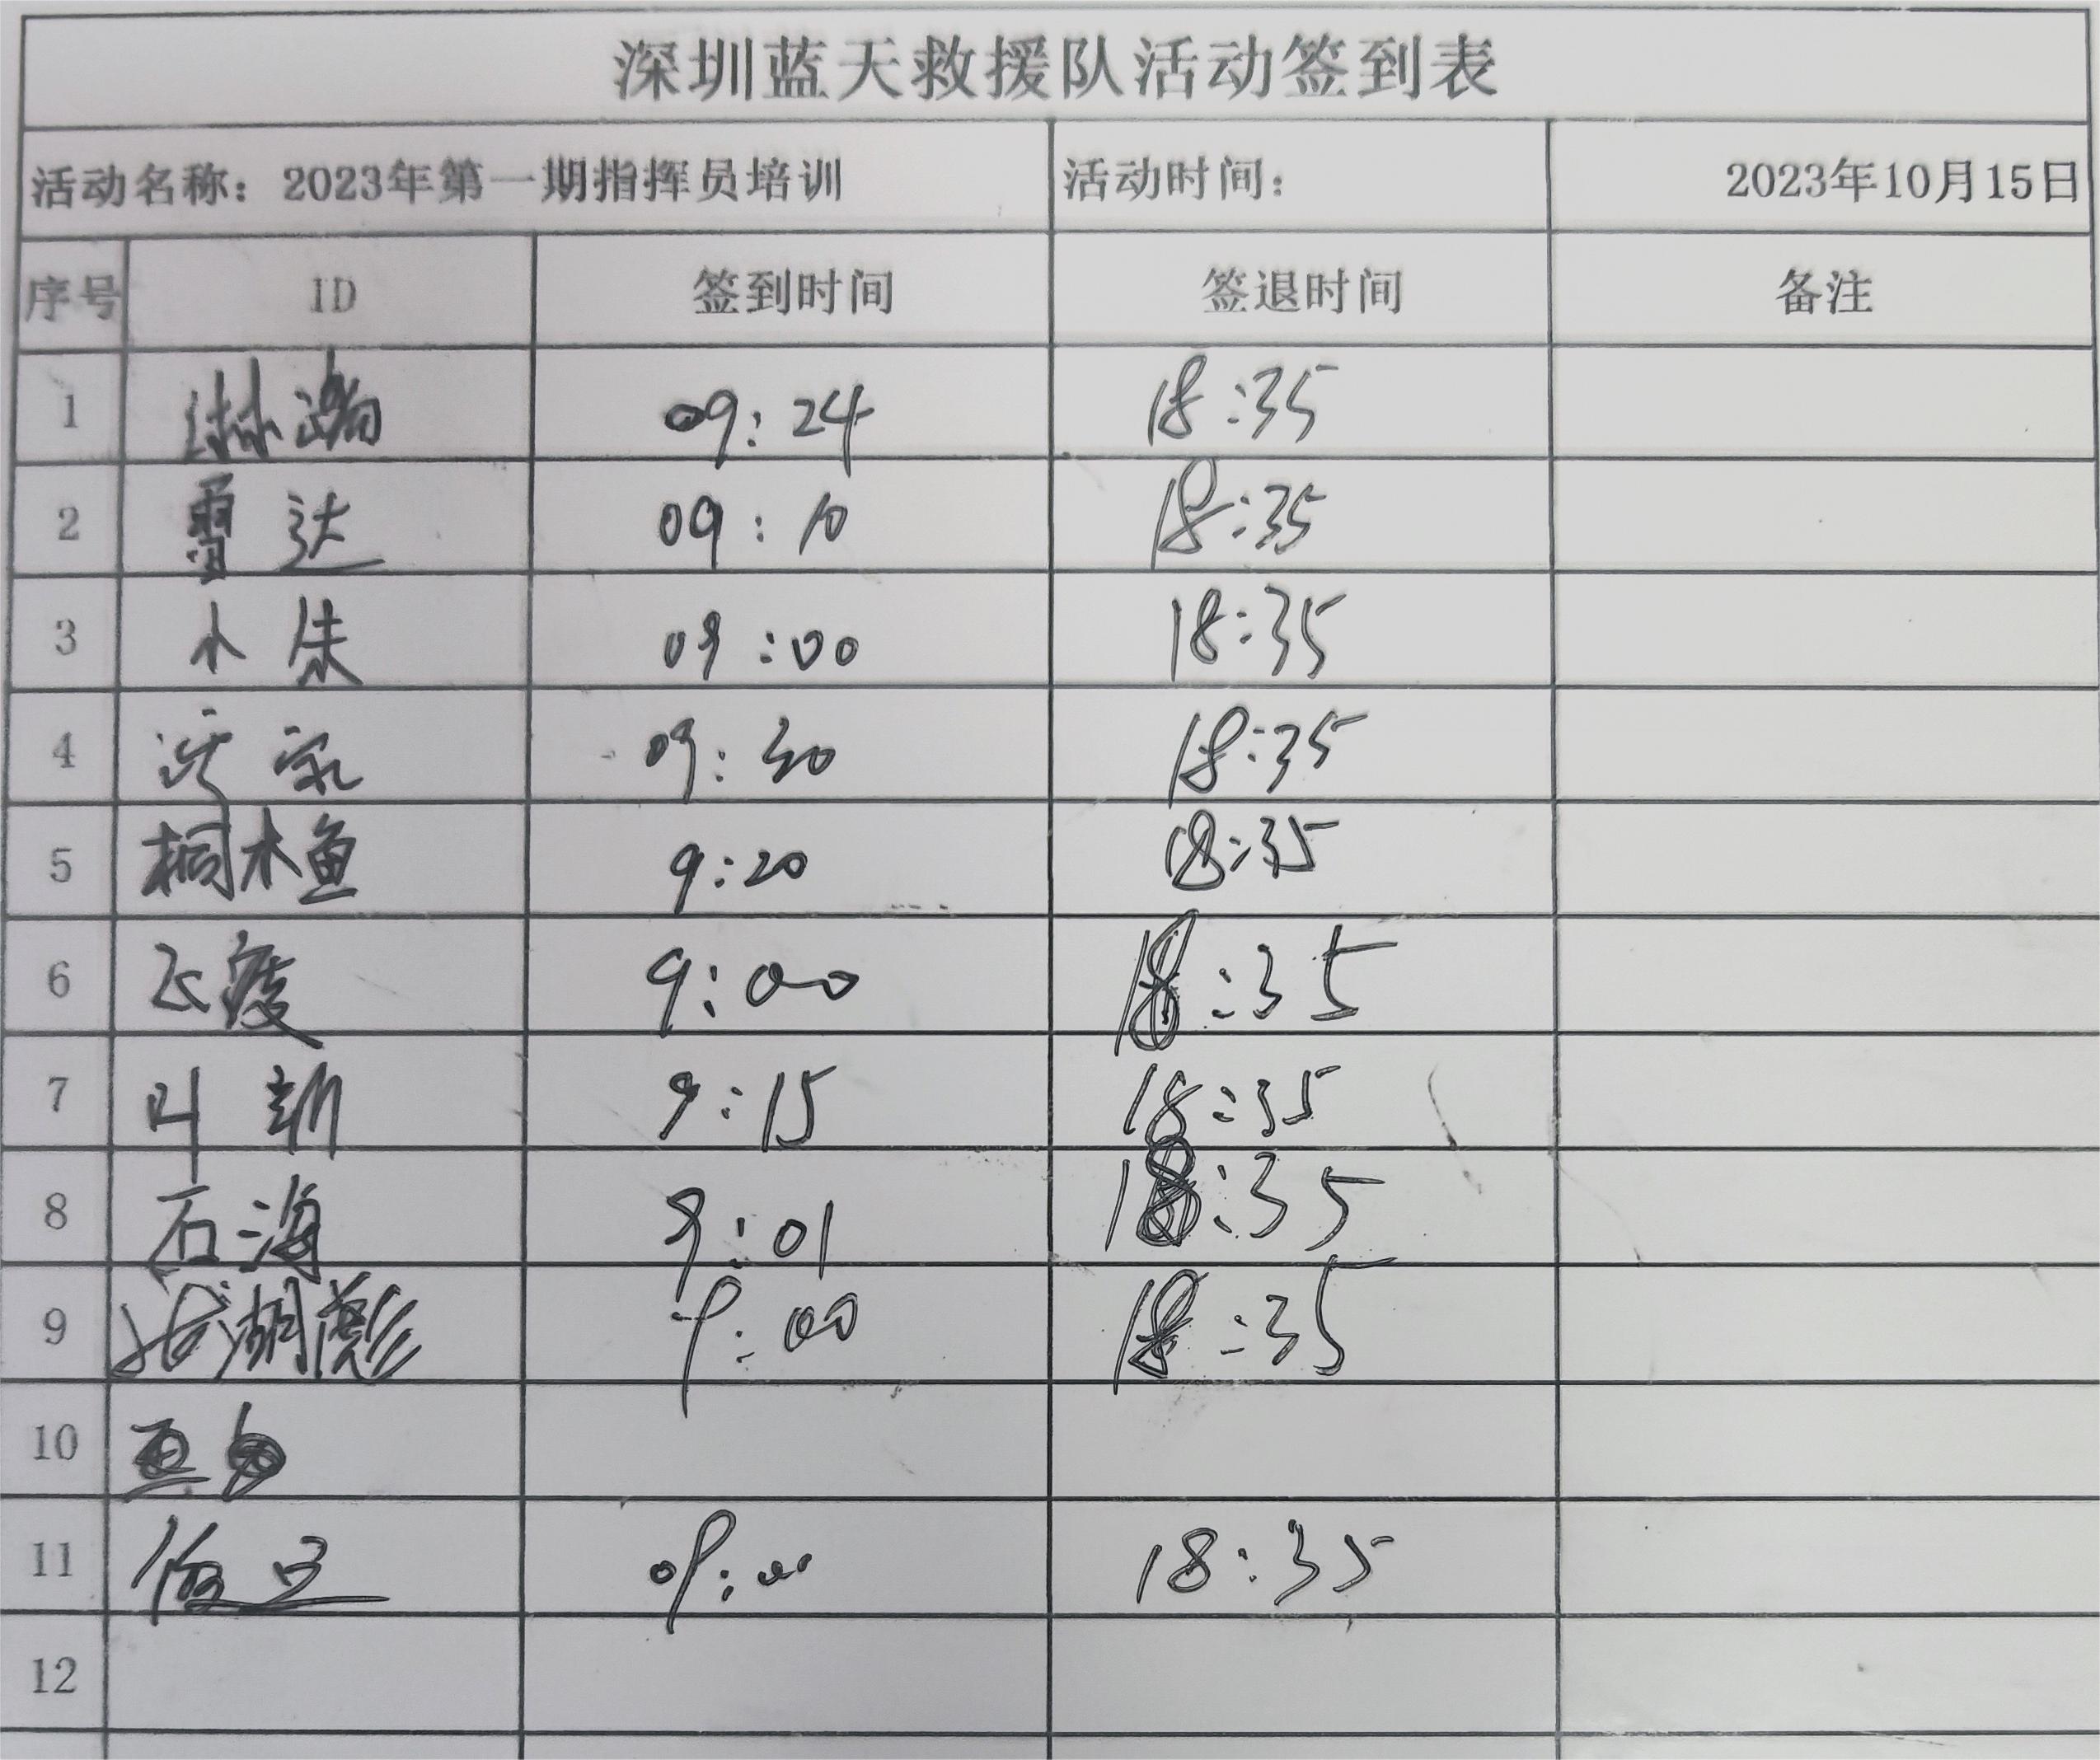 深圳蓝天救援队活动签到表
活动名称：2023年第一期指挥员培训 活动时间： 2023年10月15日
序号 ID 签到时间 签退时间 备注
1 09:24 18:35
2 雷达 09:10 18:35
3 小朱 09:00 18:35
4 09:30 18:35
5 桐木鱼 9:20 18:35
6 飞渡 9:00 18:35
7 叶新 9:15 18:35
8 石海 9:01 18:35
9 9:00 18:35
10
11 09:00 18:35
12